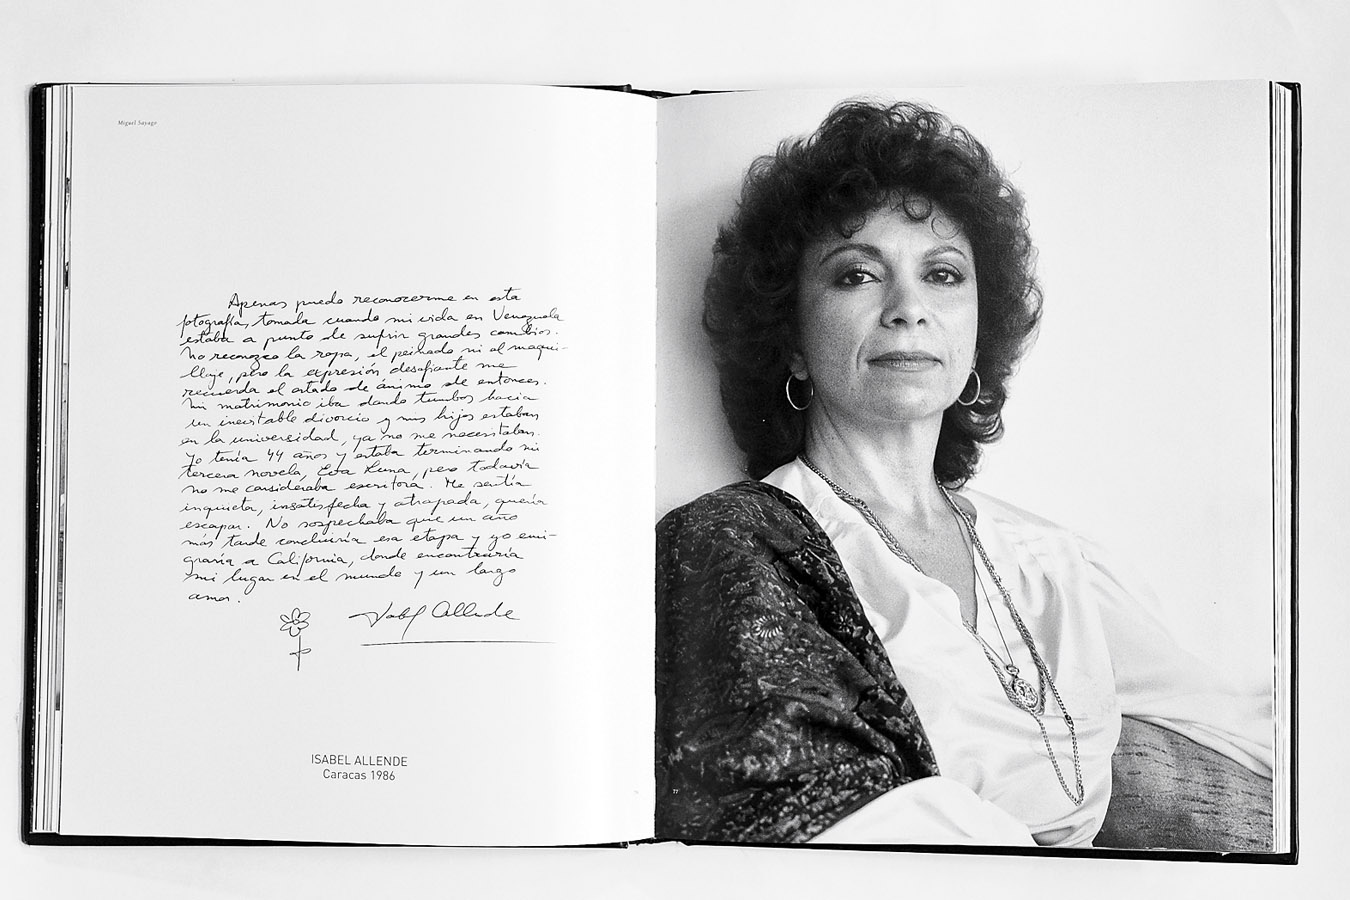 Miguel Sayago
Apenas puedo reconocerme en esta
fotografía, tomada cuando mi vida en Venezuela
estaba a punto de sufrir grandes cambios.
No reconozco la ropa, el peinado ni el maqui-
llaje, pero la expresión desafiante me
recuerda el estado de ánimo de entonces.
Mi matrimonio iba dando tumbos hacia
un inevitable divorcio y mis hijos estaban
en la universidad, ya no me necesitaban.
Yo tenía 44 años y estaba terminando mi
tercera novela, Eva Luna, pero todavía
no me consideraba escritora. Me sentía
inquieta, insatisfecha y atrapada, quería
escapar. No sospechaba que un año
más tarde concluiría esa etapa y yo emi-
graría a California, donde encontraría
mi lugar en el mundo y un largo
amor.
Isabel Allende
ISABEL ALLENDE
Caracas 1986
77